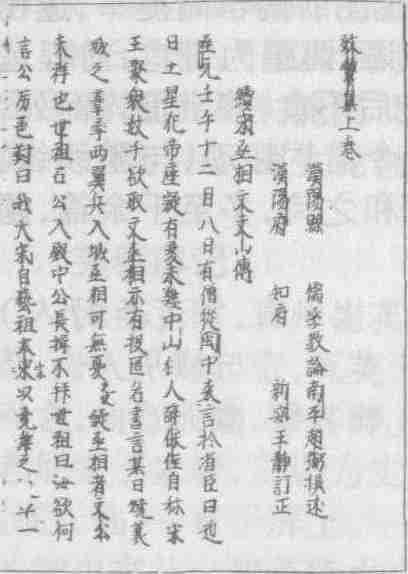 效顰集上卷
漢陽縣 儒學教諭南平趙弼撰述
漢陽府 知府 新安王靜訂正
續宋丞相文文山傳
至元壬午十二月八日有僧從閩中來言於省臣曰近
日土星犯帝座疑有變未幾中山狂人薛保住自称宋
王聚衆数千欲取文丞相亦有投匿名書言某日燒蓑
城之葦率兩翼兵入城丞相可無憂疑丞相者文公
天祥也世祖召公入殿中公長揖不拜世祖曰汝欲何
言公厉色對曰我大宋自藝祖以來以